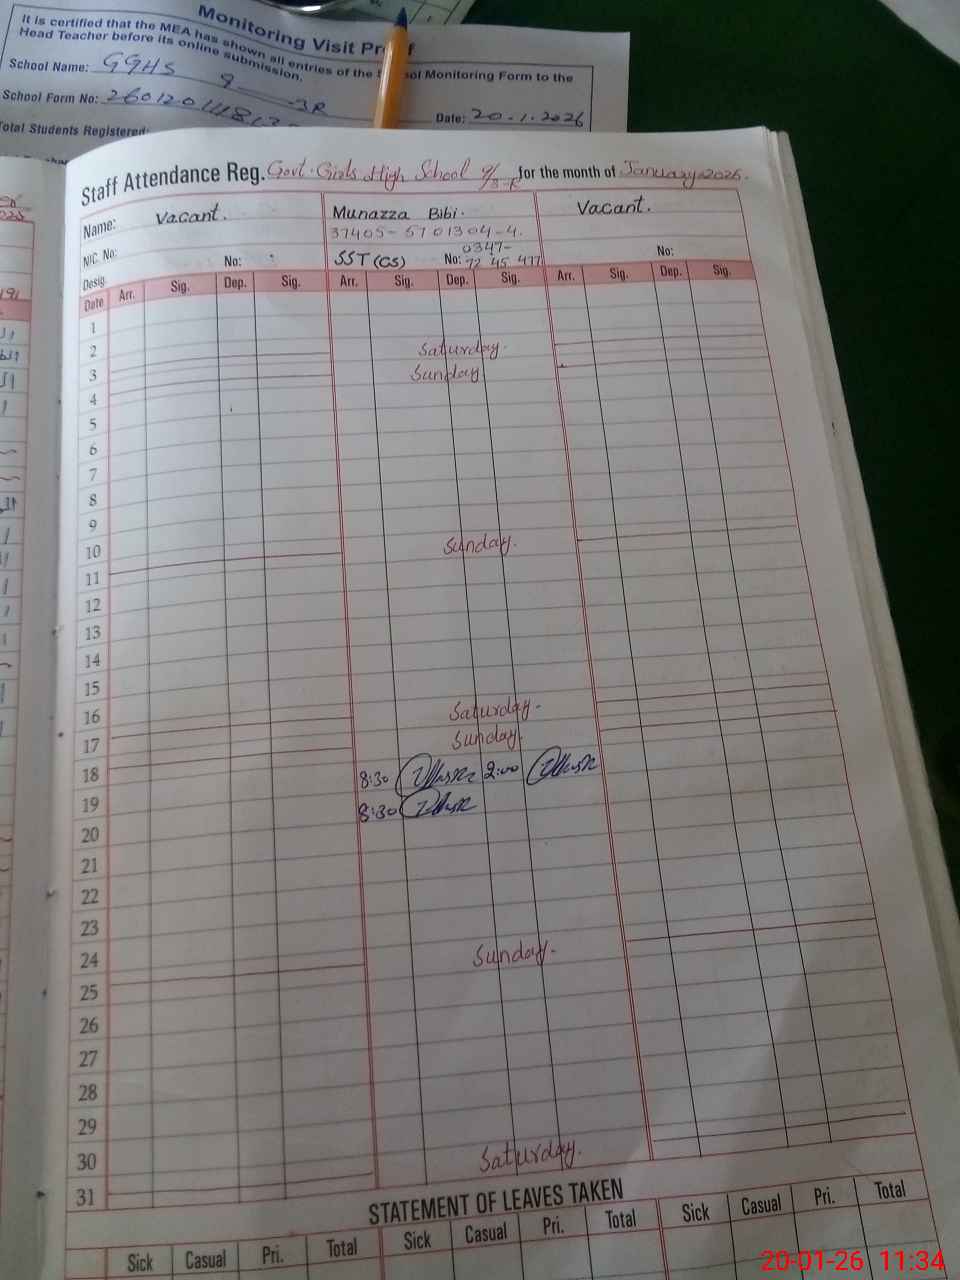 Monitoring Visit Proof
It is certified that the MEA has shown all entries of the School Monitoring Form to the
Head Teacher before its online submission.
School Name: GGHS 9 3R
School Form No:
Date: 20-1-2026
Total Students Registered:
Staff Attendance Reg. Govt. Girls High School 9/3-R for the month of January 2026.
Name: Vacant. Munazza Bibi. Vacant.
NIC. No: 37405-5701304-4.
Desig. No: SST (CS) No: 0347-7245477 No:
Date Arr. Sig. Dep. Sig. Arr. Sig. Dep. Sig. Arr. Sig. Dep. Sig.
1
2 Saturday.
3 Sunday
4
5
6
7
8
9
10 Sunday.
11
12
13
14
15
16 Saturday.
17 Sunday.
18 8:30 2:00
19 8:30
20
21
22
23
24 Sunday.
25
26
27
28
29
30 Saturday.
31
STATEMENT OF LEAVES TAKEN
Sick Casual Pri. Total Sick Casual Pri. Total Sick Casual Pri. Total
20-01-26 11:34